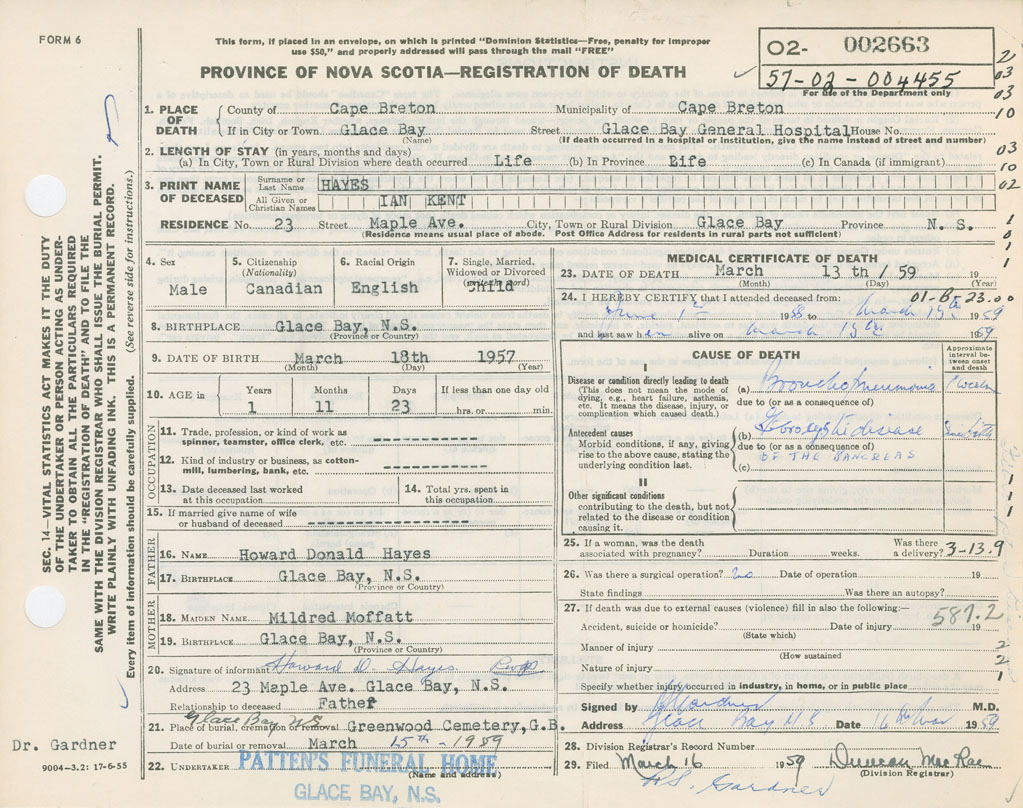 FORM 6
This form, if placed in an envelope, on which is printed "Dominion Statistics—Free, penalty for improper
use $50," and properly addressed will pass through the mail "FREE"
PROVINCE OF NOVA SCOTIA—REGISTRATION OF DEATH
02- 002663
57-02-004455
For use of the Department only
SEC. 14—VITAL STATISTICS ACT MAKES IT THE DUTY
OF THE UNDERTAKER OR PERSON ACTING AS UNDER-
TAKER TO OBTAIN ALL THE PARTICULARS REQUIRED
IN THE "REGISTRATION OF DEATH" AND TO FILE THE
SAME WITH THE DIVISION REGISTRAR WHO SHALL ISSUE THE BURIAL PERMIT.
WRITE PLAINLY WITH UNFADING INK. THIS IS A PERMANENT RECORD.
Every item of information should be carefully supplied. (See reverse side for instructions.)
1. PLACE OF DEATH County of Cape Breton Municipality of Cape Breton
If in City or Town Glace Bay Street Glace Bay General Hospital House No.
(Name) (If death occurred in a hospital or institution, give the name instead of street and number)
2. LENGTH OF STAY (in years, months and days)
(a) In City, Town or Rural Division where death occurred Life (b) In Province Life (c) In Canada (if immigrant)
3. PRINT NAME OF DECEASED Surname or Last Name HAYES
All Given or Christian Names IAN KENT
RESIDENCE No. 23 Street Maple Ave. City, Town or Rural Division Glace Bay Province N. S.
(Residence means usual place of abode. Post Office Address for residents in rural parts not sufficient)
2
03
03
10
03
10
02
1
0
1
1
4. Sex 5. Citizenship (Nationality) 6. Racial Origin 7. Single, Married, Widowed or Divorced (write the word)
Male Canadian English Child
8. BIRTHPLACE Glace Bay, N.S.
(Province or Country)
9. DATE OF BIRTH March 18th 1957
(Month) (Day) (Year)
10. AGE in Years Months Days If less than one day old
1 11 23 hrs. or min.
OCCUPATION
11. Trade, profession, or kind of work as
spinner, teamster, office clerk, etc.
12. Kind of industry or business, as cotton-
mill, lumbering, bank, etc.
13. Date deceased last worked
at this occupation
14. Total yrs. spent in
this occupation
15. If married give name of wife
or husband of deceased
FATHER
16. NAME Howard Donald Hayes
17. BIRTHPLACE Glace Bay, N.S.
(Province or Country)
MOTHER
18. MAIDEN NAME Mildred Moffatt
19. BIRTHPLACE Glace Bay, N.S.
(Province or Country)
20. Signature of informant Howard D. Hayes
Address 23 Maple Ave. Glace Bay, N.S.
Relationship to deceased Father
Glace Bay N.S
21. Place of burial, cremation or removal Greenwood Cemetery, G.B.
Date of burial or removal March 15th - 1959
22. UNDERTAKER PATTEN'S FUNERAL HOME
(Name and address)
GLACE BAY, N.S.
Dr. Gardner
9004-3.2: 17-6-55
MEDICAL CERTIFICATE OF DEATH
23. DATE OF DEATH March 13 th / 59 19
(Month) (Day) (Year)
24. I HEREBY CERTIFY that I attended deceased from: 01-B 23.00
June 1st 1958 to March 1959
and last saw h alive on March 1959
CAUSE OF DEATH
Approximate interval between onset and death
I
Disease or condition directly leading to death
(This does not mean the mode of
dying, e.g., heart failure, asthenia,
etc. It means the disease, injury, or
complication which caused death.)
(a) Broncho Pneumonia
due to (or as a consequence of)
Antecedent causes
Morbid conditions, if any, giving
rise to the above cause, stating the
underlying condition last.
(b) Fibrocystic disease
due to (or as a consequence of)
OF THE PANCREAS
(c)
II
Other significant conditions
contributing to the death, but not
related to the disease or condition
causing it.
25. If a woman, was the death
associated with pregnancy? Duration weeks. Was there a delivery? 3-13.9
26. Was there a surgical operation? no Date of operation 19
State findings Was there an autopsy?
27. If death was due to external causes (violence) fill in also the following:—
587.2
Accident, suicide or homicide? Date of injury 19
(State which)
Manner of injury
(How sustained
Nature of injury
Specify whether injury occurred in industry, in home, or in public place
1
1
1
2
2
1
Signed by M.D.
Address Glace Bay N S Date 16th Mar 1959
28. Division Registrar's Record Number
29. Filed March 16 1959 Duncan MacRae
(Division Registrar)
Gardner